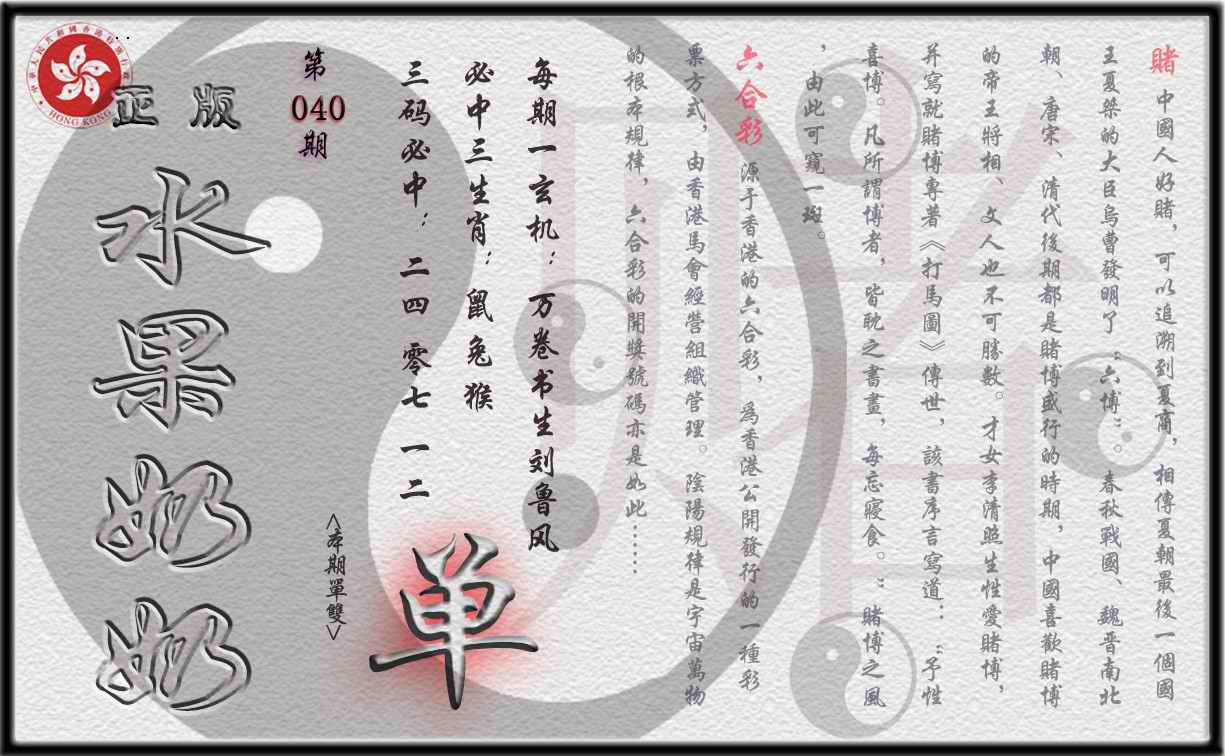 賭 中國人好賭，可以追溯到夏商，相傳夏朝最後一個國
王夏桀的大臣烏曹發明了“六博”。春秋戰國、魏晋南北
朝、唐宋、清代後期都是賭博盛行的時期，中國喜歡賭博
的帝王將相、文人也不可勝數。才女李清照生性愛賭博，
并寫就賭博專著《打馬圖》傳世，該書序言寫道：“予性
喜博。凡所謂博者，皆耽之書畫，每忘寢食。”賭博之風
，由此可窺一斑。
六合彩 源于香港的六合彩，爲香港公開發行的一種彩
票方式，由香港馬會經營組織管理。陰陽規律是宇宙萬物
的根本規律，六合彩的開獎號碼亦是如此……
每期一玄机：万卷书生刘鲁风
必中三生肖：鼠兔猴
三码必中：二四 零七 一二
<本期單雙>
单
第
040
期
正版
水果奶奶
HONG KONG